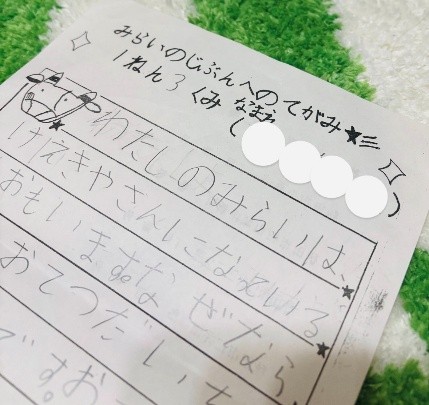 みらいのじぶんへのてがみ★
1ねん3くみ なまえ( )
わたしのみらいは、
けえきやさんになっている★
おもいます。なぜなら、★
おてつだい